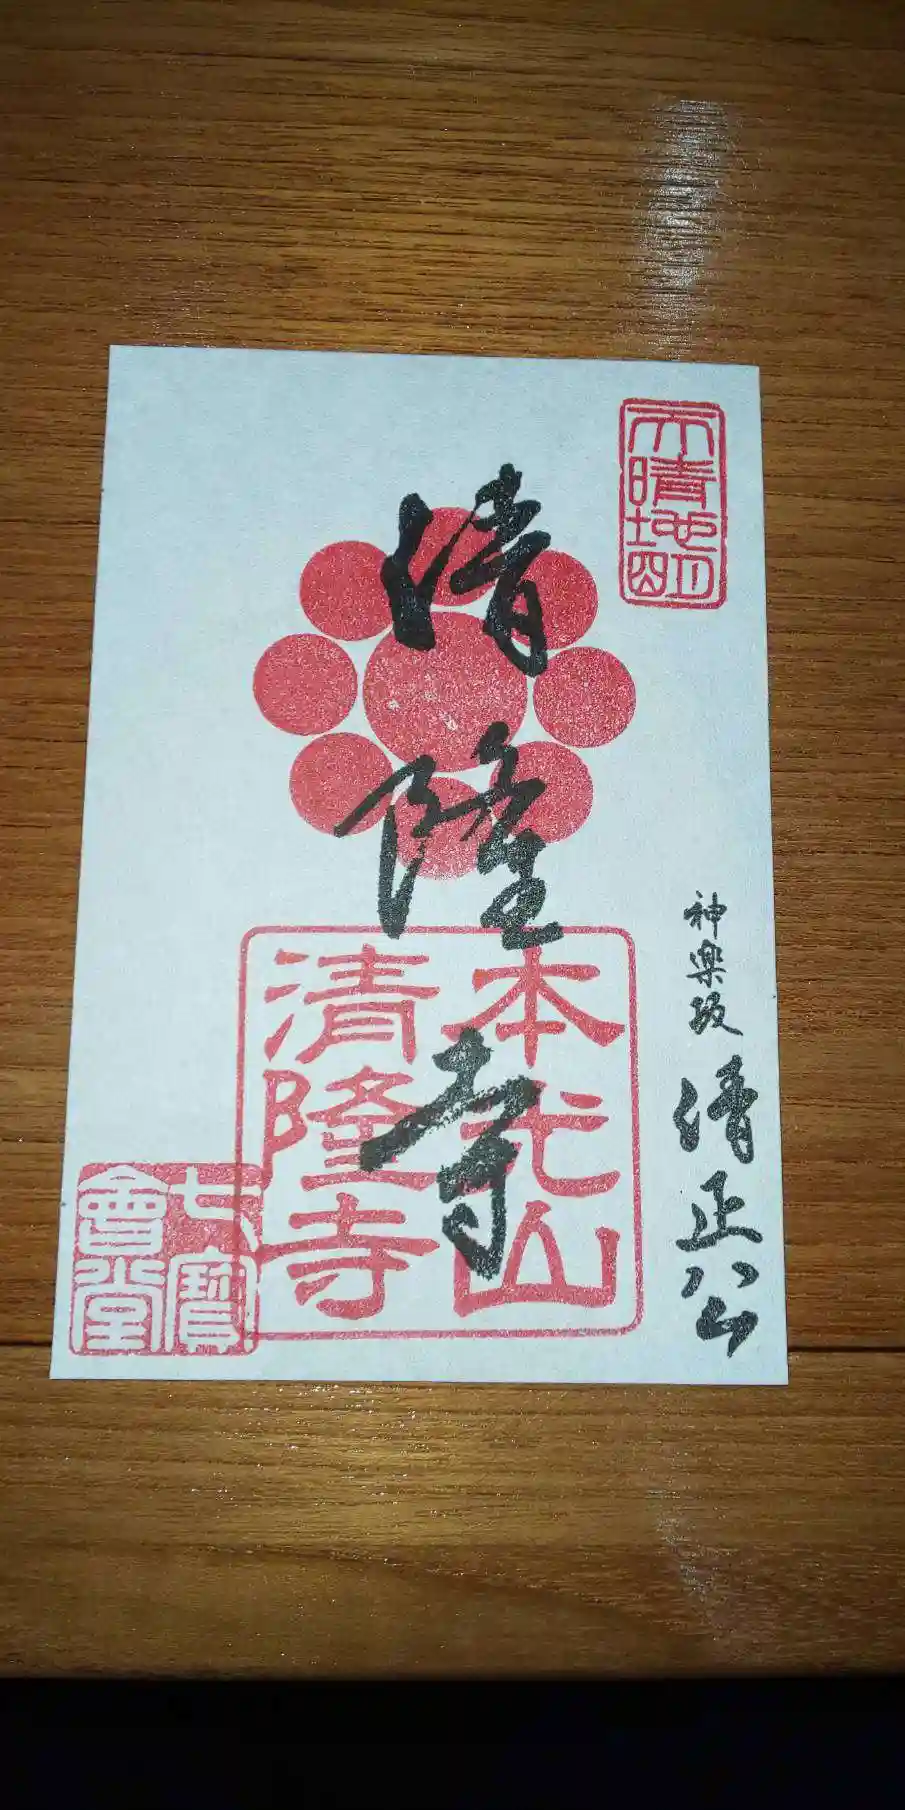 天晴地明
清隆寺
神楽坂 清正公
本光山
清隆寺
七寶
會堂